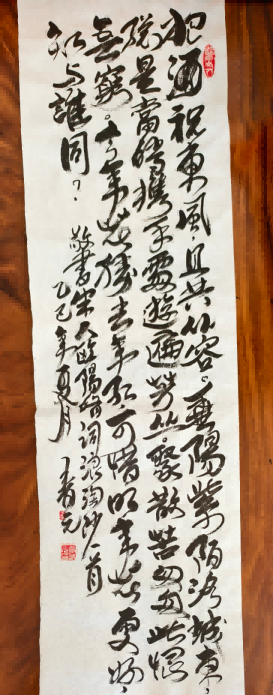 把酒祝東風，且共从容。垂陽紫陌洛城東
總是當時攜手處遊遍芳丛。聚散苦匆匆此恨
無窮。今年花勝去年紅可惜明年花更好，
知与誰同？
敬書宋人歐陽脩詞浪淘沙一首
乙巳年夏月